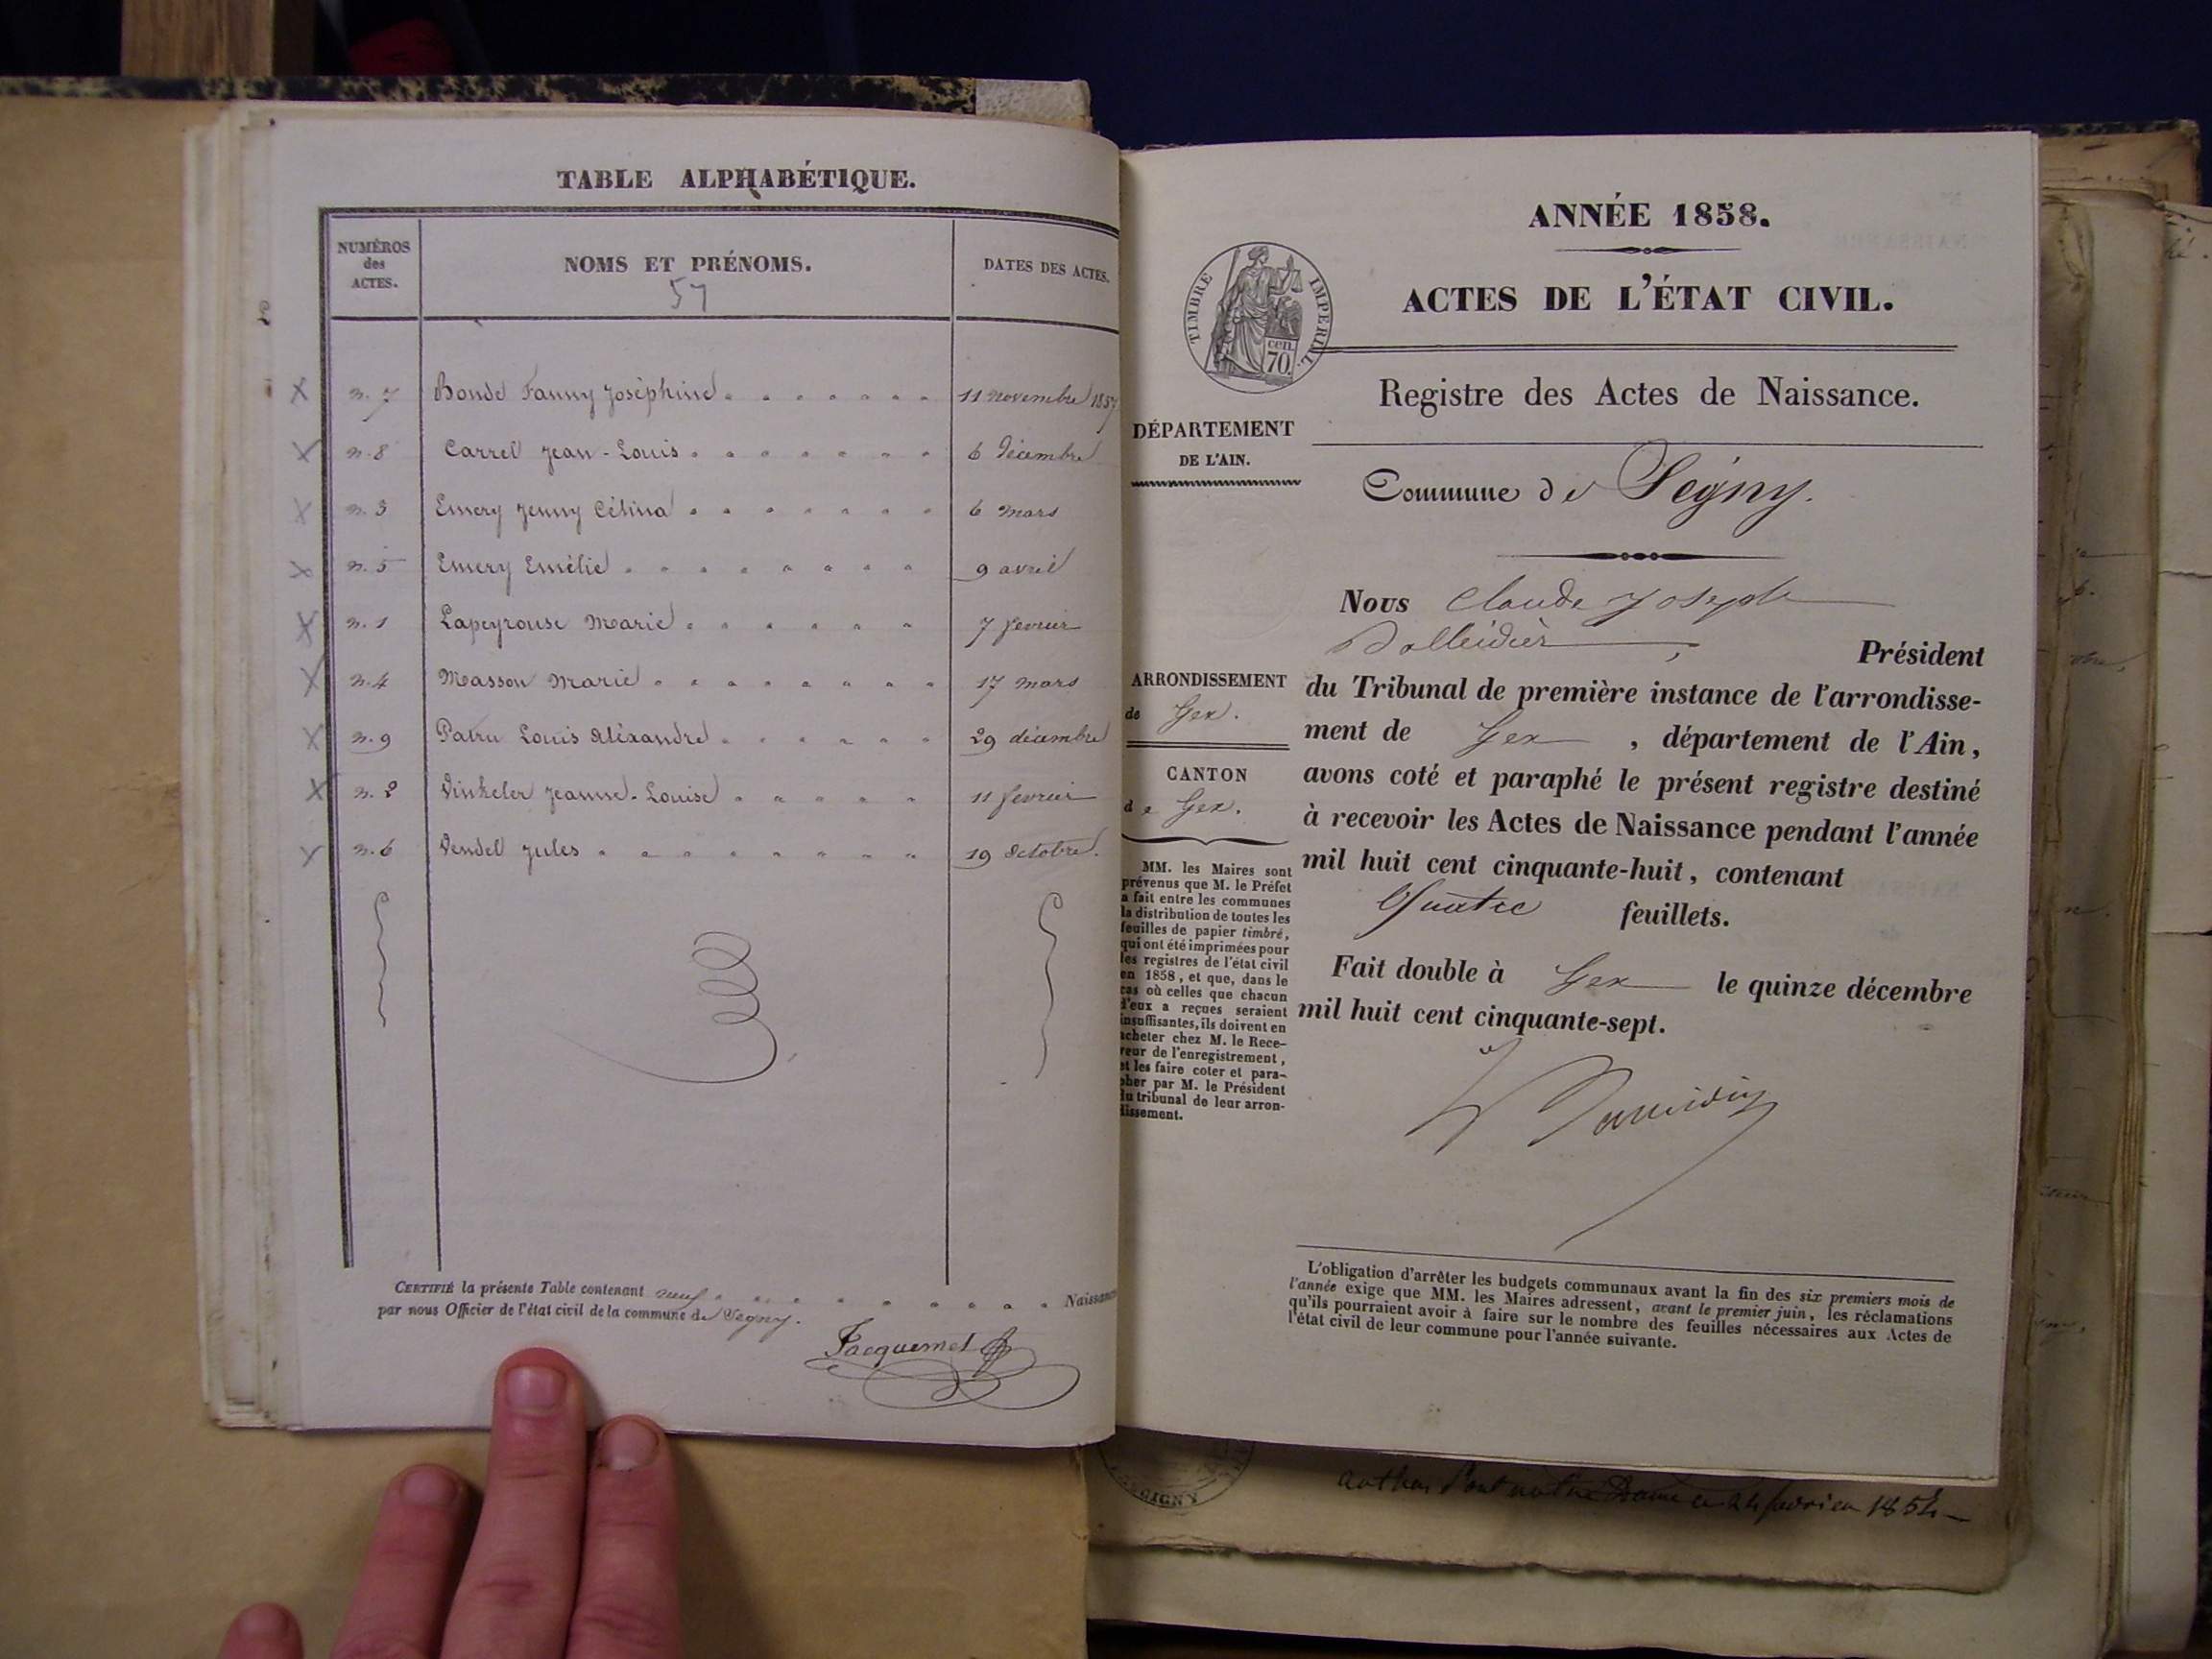 TABLE ALPHABÉTIQUE.
NUMÉROS
des
ACTES.
NOMS ET PRÉNOMS.
57
DATES DES ACTES.
n. 7 Bonde Fanny Joséphine 11 novembre 1857
n. 8 Carrel Jean-Louis 6 décembre
n. 3 Emery Jenny Célina 6 mars
n. 5 Emery Emélie 9 avril
n. 1 Lapeyrouse Marie 7 fevrier
n. 4 Masson Marie 17 mars
n. 9 Patru Louis Aléxandre 29 décembre
n. 2 Vinkeler Jeanne-Louise 11 fevrier
n. 6 Vendel Jules 19 Octobre.
CERTIFIÉ la présente Table contenant neuf Naissance
par nous Officier de l'état civil de la commune de Segny.
Jacquemet
ANNÉE 1858.
TIMBRE IMPERIAL
cen.
70.
ACTES DE L'ÉTAT CIVIL.
Registre des Actes de Naissance.
DÉPARTEMENT
DE L'AIN.
Commune de Ségny.
ARRONDISSEMENT
de Gex.
CANTON
de Gex.
MM. les Maires sont
prévenus que M. le Préfet
a fait entre les communes
la distribution de toutes les
feuilles de papier timbré,
qui ont été imprimées pour
les registres de l'état civil
en 1858, et que, dans le
cas où celles que chacun
d'eux a reçues seraient
insuffisantes, ils doivent en
acheter chez M. le Rece-
veur de l'enregistrement,
et les faire coter et para-
pher par M. le Président
du tribunal de leur arron-
dissement.
Nous Claude Joseph
Président
du Tribunal de première instance de l'arrondisse-
ment de Gex, département de l'Ain,
avons coté et paraphé le présent registre destiné
à recevoir les Actes de Naissance pendant l'année
mil huit cent cinquante-huit, contenant
Quatre feuillets.
Fait double à Gex le quinze décembre
mil huit cent cinquante-sept.
L'obligation d'arrêter les budgets communaux avant la fin des six premiers mois de
l'année exige que MM. les Maires adressent, avant le premier juin, les réclamations
qu'ils pourraient avoir à faire sur le nombre des feuilles nécessaires aux Actes de
l'état civil de leur commune pour l'année suivante.